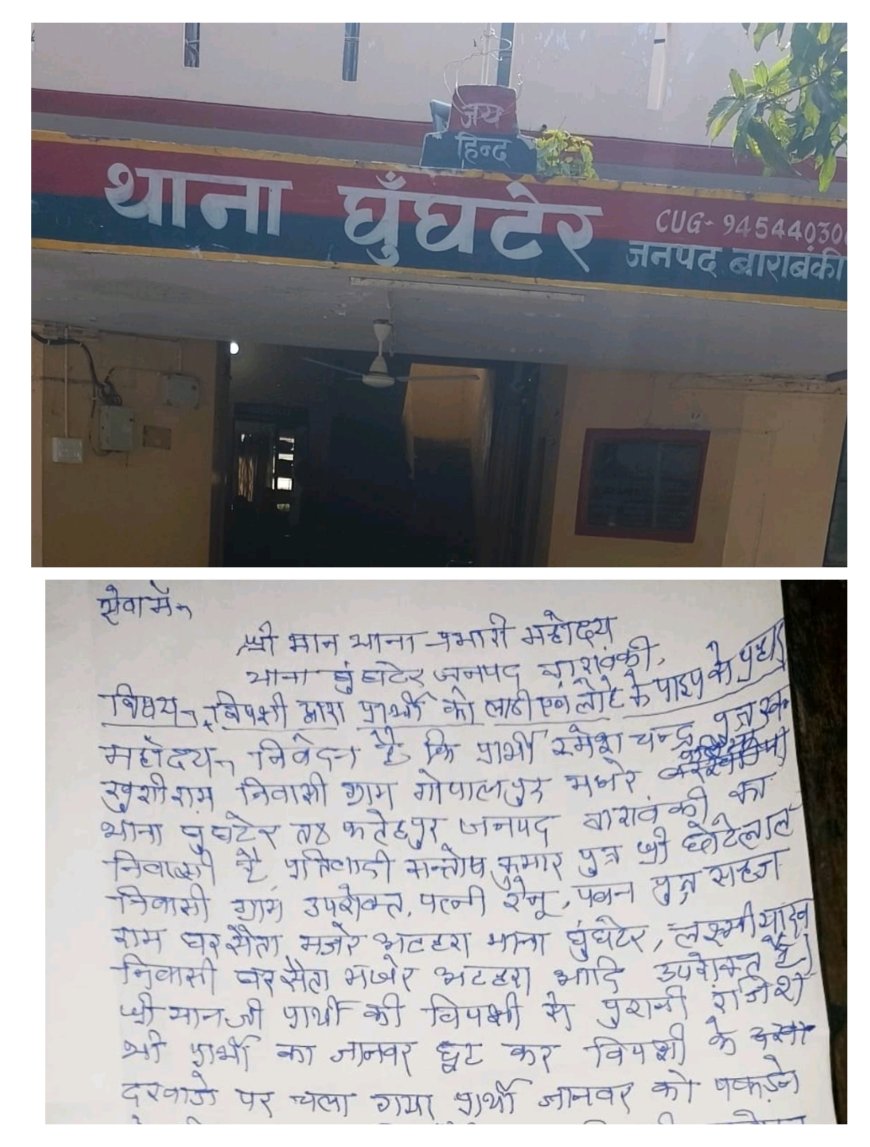 जय
हिन्द
थाना घुँघटेर
CUG- 94544030
जनपद बाराबंकी
सेवा में,
श्री मान थाना प्रभारी महोदय
थाना घुंघटेर जनपद बाराबंकी,
विषय- विपक्षी द्वारा प्रार्थी को लाठी एवं लोहे के पाइप से
महोदय, निवेदन है कि प्रार्थी रमेश चन्द्र पुत्र स्व॰
खुशीराम निवासी ग्राम गोपालपुर मजरे
थाना घुंघटेर तह॰ फतेहपुर जनपद बाराबंकी का
निवासी है प्रतिवादी सन्तोष कुमार पुत्र श्री छोटेलाल
निवासी ग्राम उपरोक्त, पत्नी रेनू, पवन पुत्र सहज
राम घरसैता मजरे अटहरा थाना घुंघटेर, लक्ष्मी यादव
निवासी मजरे अटहरा आदि उपरोक्त है।
श्री मान जी प्रार्थी की विपक्षी से पुरानी रंजिश
थी प्रार्थी का जानवर छूट कर विपक्षी के
दरवाजे पर चला गया प्रार्थी जानवर को पकड़ने